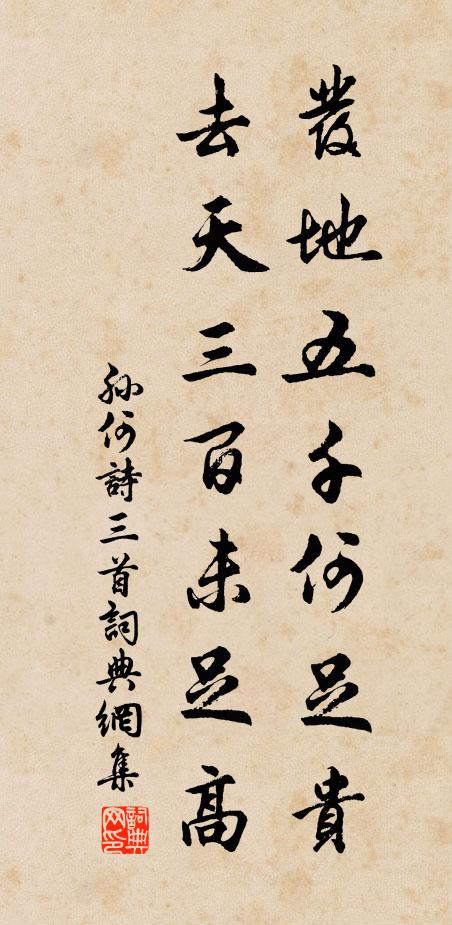 發地五千何足貴
去天三百未足高
孫何詩三首詞典網集
詞典网印